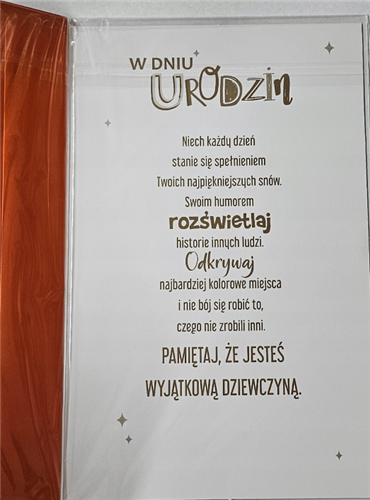 W DNIU
URODZIN
Niech każdy dzień
stanie się spełnieniem
Twoich najpiękniejszych snów.
Swoim humorem
rozświetlaj
historie innych ludzi.
Odkrywaj
najbardziej kolorowe miejsca
i nie bój się robić to,
czego nie zrobili inni.
PAMIĘTAJ, ŻE JESTEŚ
WYJĄTKOWĄ DZIEWCZYNĄ.